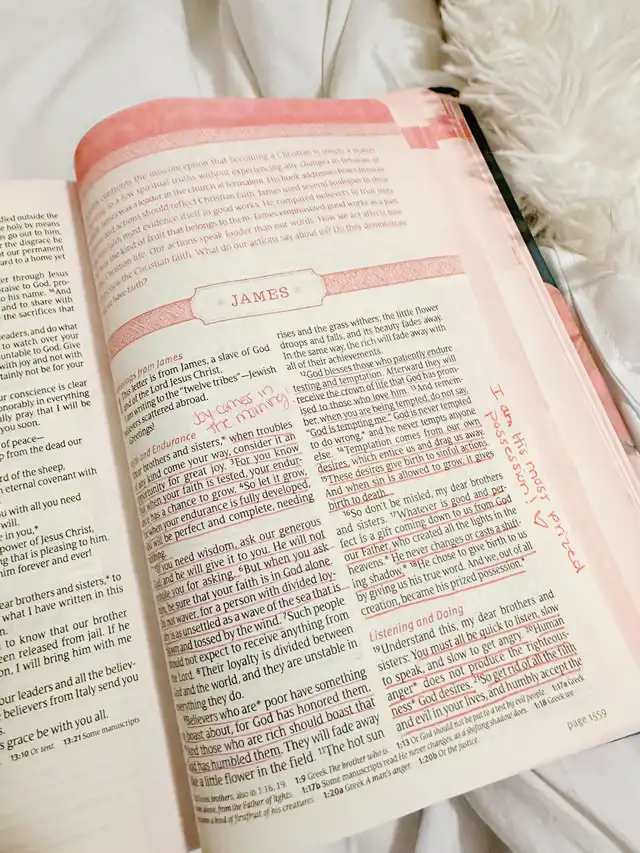 died outside the
holy by means
s go out to him,
r the disgrace he
ot our permanent
ard to a home yet
er through Jesus
praise to God, pro-
o his name. 16And
and to share with
the sacrifices that
eaders, and do what
to watch over your
untable to God. Give
with joy and not with
rtainly not be for your
ur conscience is clear
onorably in everything
ally pray that I will be
you soon.
of peace—
p from the dead our
rd of the sheep,
n eternal covenant with
you with all you need
will.
e in you,*
power of Jesus Christ,
g that is pleasing to him.
im forever and ever!
ear brothers and sisters,* to
what I have written in this
to know that our brother
een released from jail. If he
on, I will bring him with me
our leaders and all the believ-
believers from Italy send you
s grace be with you all.
13:10 Or tent. 13:21 Some manuscripts
confronts the misconception that becoming a Christian is simply a matter
to a few spiritual truths without experiencing any changes in behavior or
was a leader in the church at Jerusalem. His book addresses how Christian
and actions should reflect Christian faith. James used several analogies to show
faith must evidence itself in good works. He compared believers to fruit trees
the kind of fruit that belongs to them. James emphasized good works as a part
Christian life. Our actions speak louder than our words. How we act affects how
view the Christian faith. What do our actions say about us? Do they demonstrate
have faith?
JAMES
Greetings from James
This letter is from James, a slave of God
and of the Lord Jesus Christ.
I am writing to the “twelve tribes”—Jewish
believers scattered abroad.
Greetings!
Joy comes in
the morning!
and Endurance
Dear brothers and sisters,* when troubles
of any kind come your way, consider it an
opportunity for great joy. 3For you know
that when your faith is tested, your endur-
ance has a chance to grow. 4So let it grow,
for when your endurance is fully developed,
you will be perfect and complete, needing
nothing.
If you need wisdom, ask our generous
God, and he will give it to you. He will not
rebuke you for asking. 6But when you ask
him, be sure that your faith is in God alone.
Do not waver, for a person with divided loy-
alty is as unsettled as a wave of the sea that is
blown and tossed by the wind. 7Such people
should not expect to receive anything from
the Lord. 8Their loyalty is divided between
God and the world, and they are unstable in
everything they do.
Believers who are* poor have something
to boast about, for God has honored them.
And those who are rich should boast that
God has humbled them. They will fade away
like a little flower in the field. 11The hot sun
rises and the grass withers; the little flower
droops and falls, and its beauty fades away.
In the same way, the rich will fade away with
all of their achievements.
12God blesses those who patiently endure
testing and temptation. Afterward they will
receive the crown of life that God has prom-
ised to those who love him. 13And remem-
ber, when you are being tempted, do not say,
“God is tempting me.” God is never tempted
to do wrong,* and he never tempts anyone
else. 14Temptation comes from our own
desires, which entice us and drag us away.
15These desires give birth to sinful actions.
And when sin is allowed to grow, it gives
birth to death.
16So don’t be misled, my dear brothers
and sisters. 17Whatever is good and per-
fect is a gift coming down to us from God
our Father, who created all the lights in the
heavens.* He never changes or casts a shift-
ing shadow.* 18He chose to give birth to us
by giving us his true word. And we, out of all
creation, became his prized possession.*
I am His most prized
possession!
Listening and Doing
19Understand this, my dear brothers and
sisters: You must all be quick to listen, slow
to speak, and slow to get angry. 20Human
anger* does not produce the righteous-
ness* God desires. 21So get rid of all the filth
and evil in your lives, and humbly accept the
brothers; also in 1:16, 19. 1:9 Greek The brother who is. 1:13 Or God should not be put to a test by evil people. 1:17a Greek
from above, from the Father of lights. 1:17b Some manuscripts read He never changes, as a shifting shadow does. 1:18 Greek we
became a kind of firstfruit of his creatures. 1:20a Greek A man’s anger. 1:20b Or the justice.
page 1559